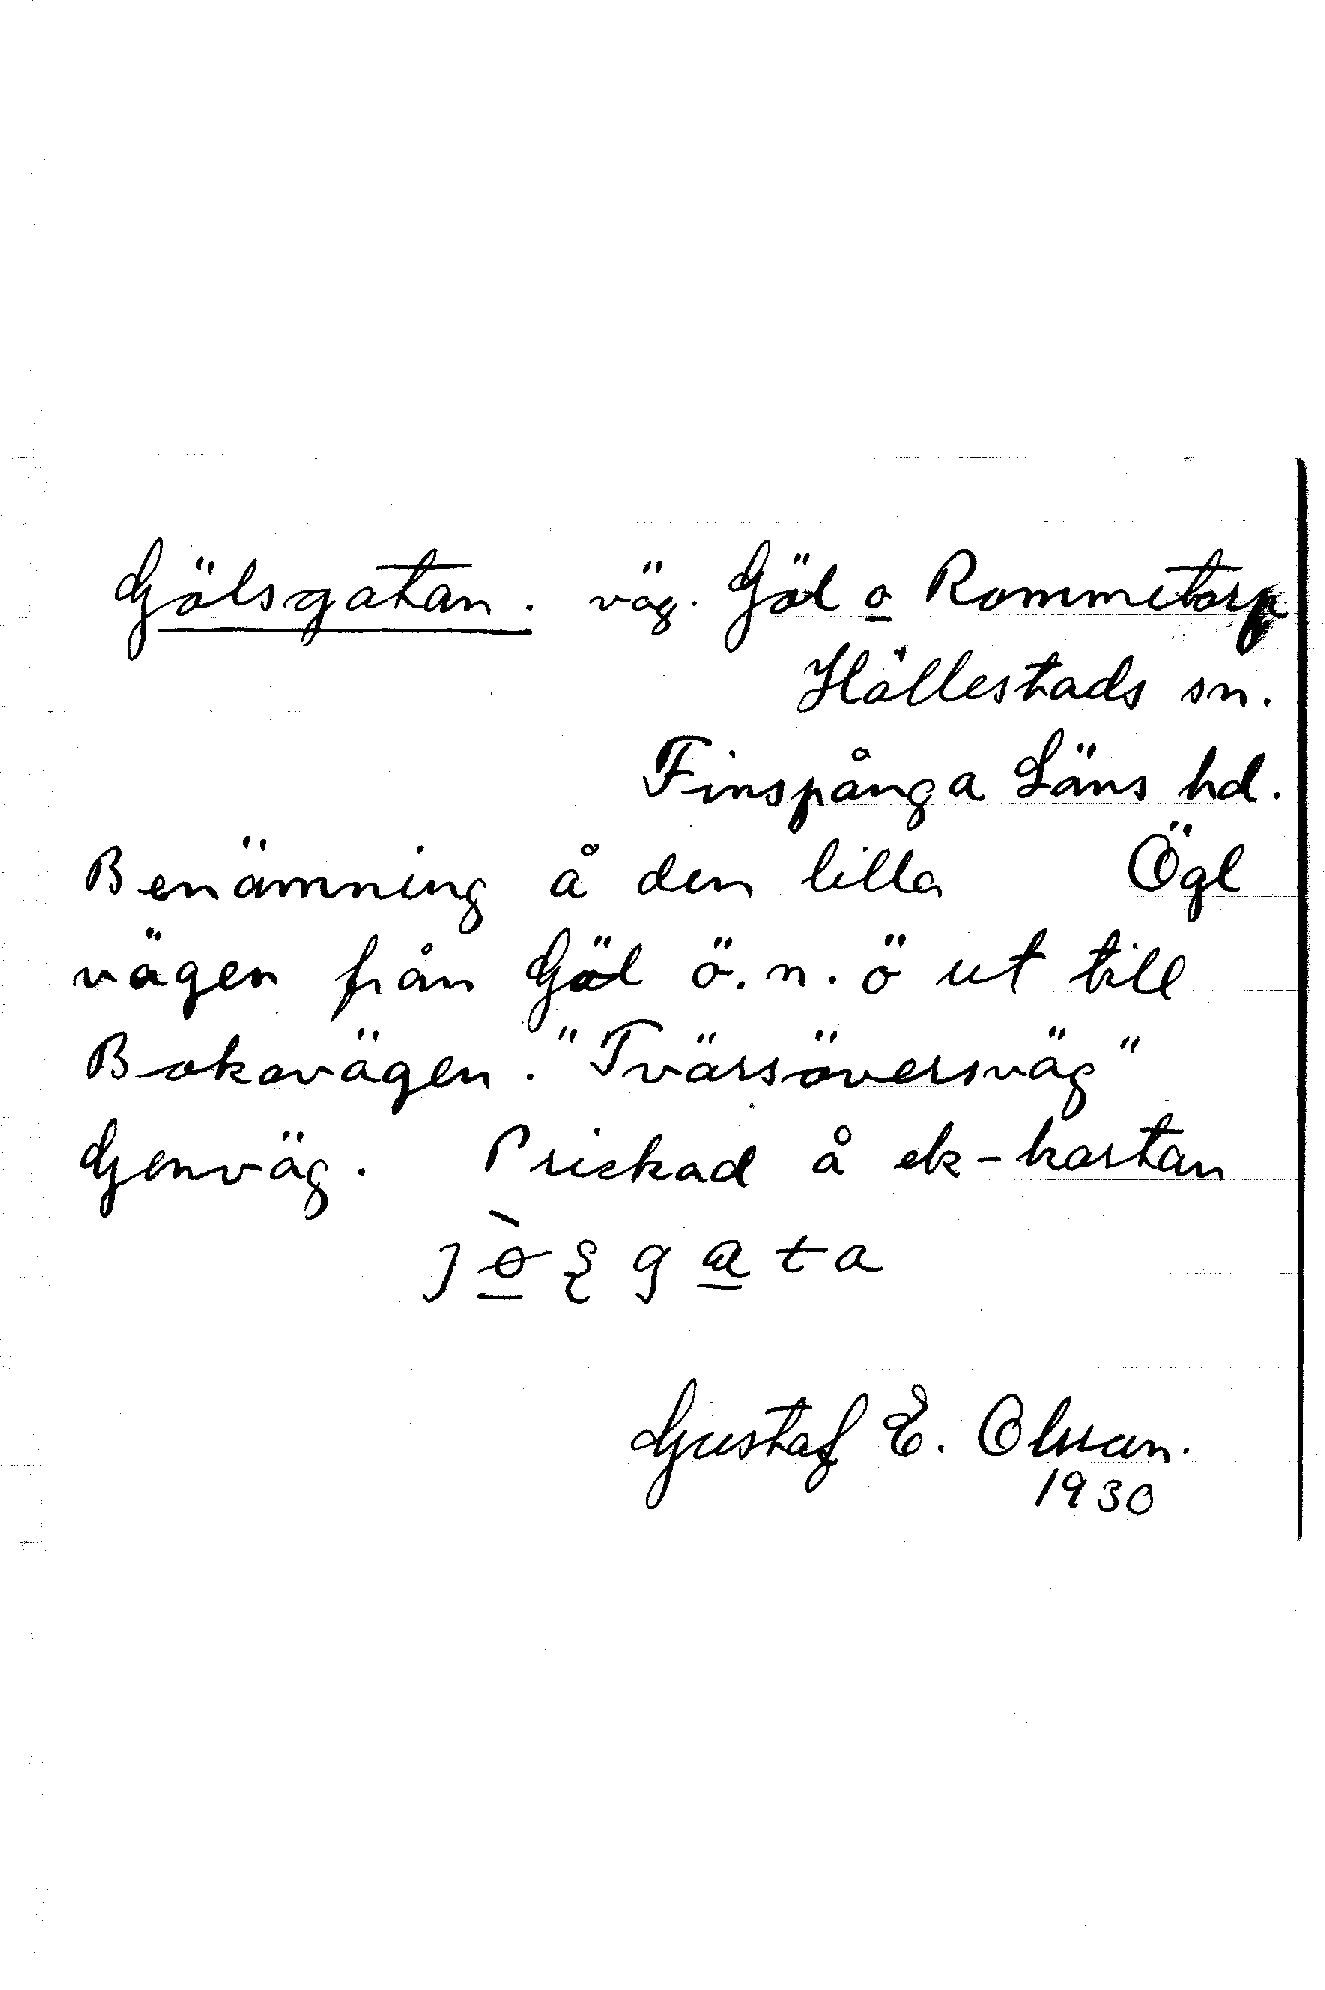 Gölsgatan. väg. Göl o Rommetorp
Hällestads sn.
Finspånga Läns hd.
Benämning å den lilla Ögl
vägen från Göl ö.n.ö ut till
Bokavägen. "Tvärsöversväg"
Genväg. Prickad å ek-kartan
Gustaf E. Olsson.
1930